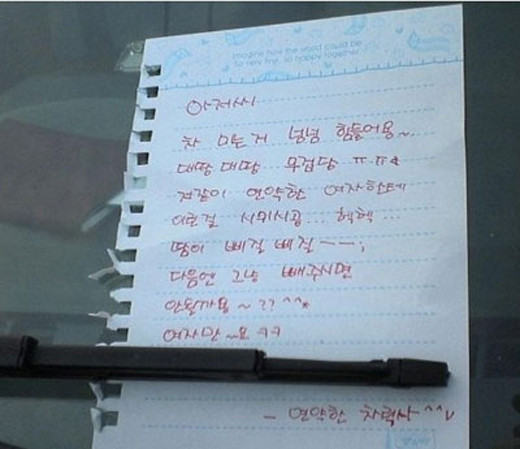 imagine how the world could be
So very fine, so happy together
아저씨
차 미는거 넘넘 힘들어용~..
대땅 대땅 무겁당 ㅠ.ㅠ
저같이 연약한 여자한테
이런걸 시키시공... 헥헥...
땀이 삐질 삐질 ㅡㅡ;
다음엔 그냥 빼주시면
안될까용~?? ^^*
여자만~요 ㅋㅋ
- 연약한 차력사 ^^v